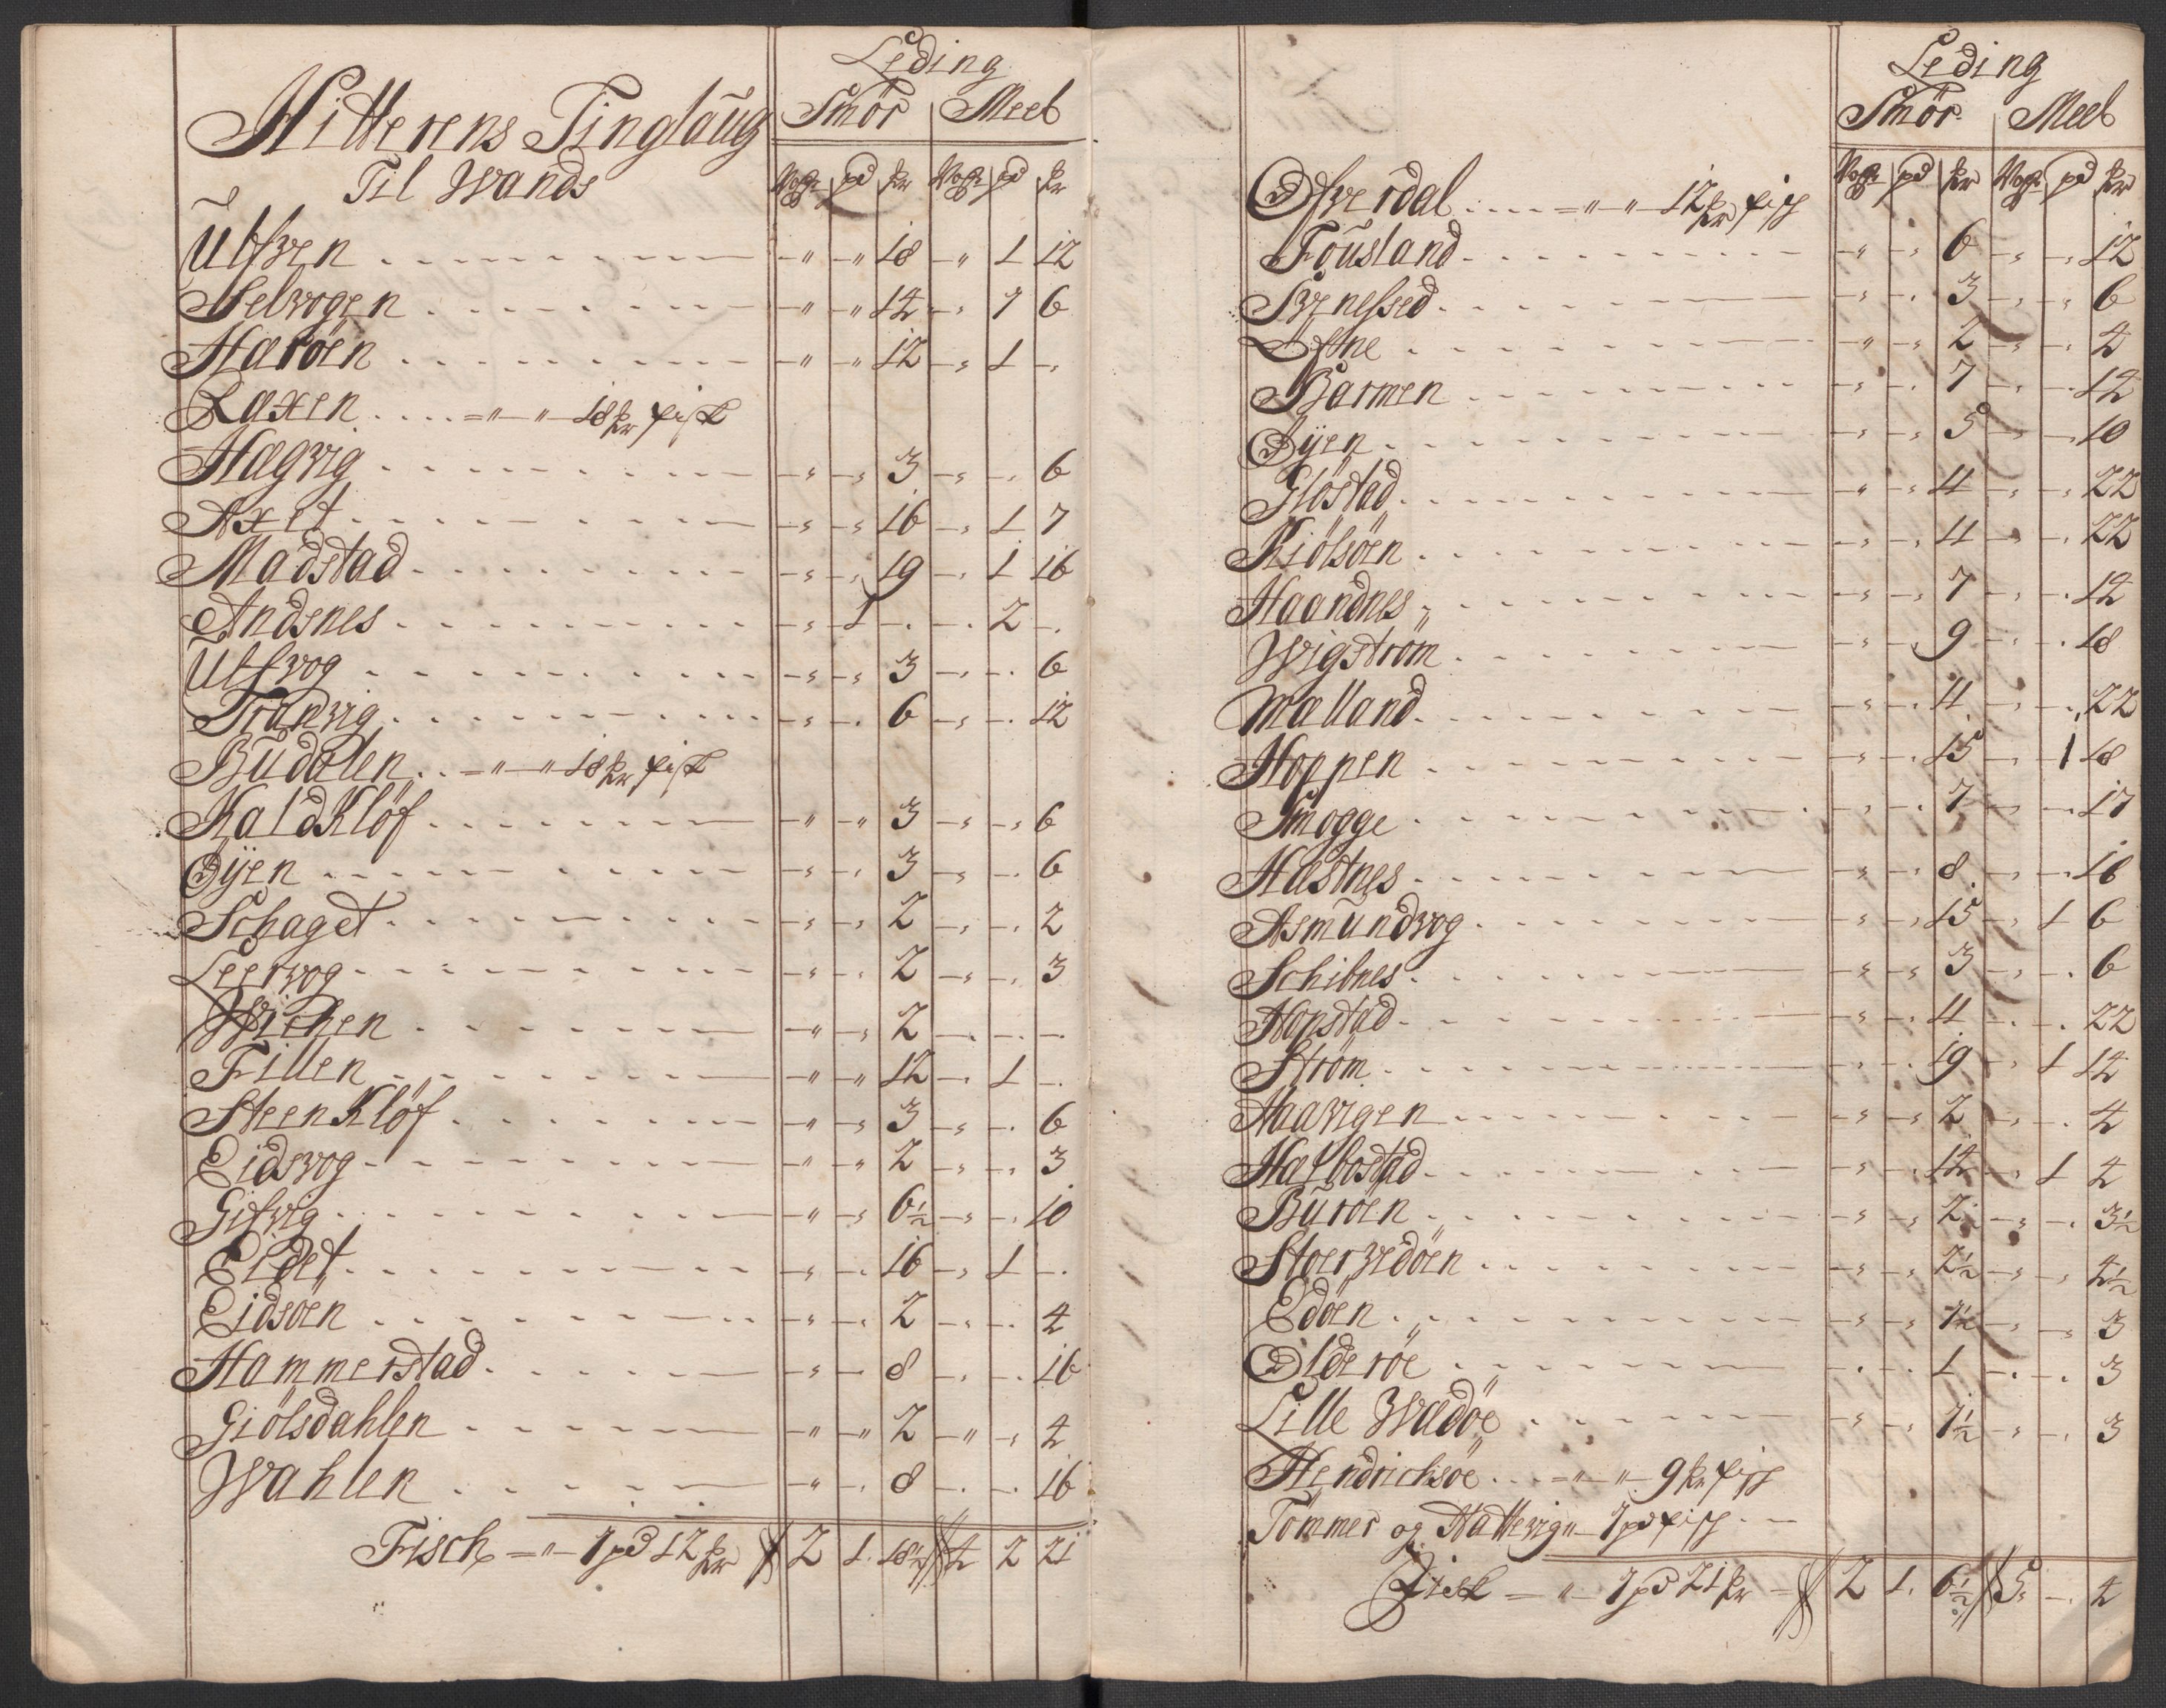 Leding
Hitterens Tinglaug Smör Meel
Til Wands Wog pd mr Wog pd mr
Ulfven . . . - " - " 18 - " 1 12
Selvogen . . . - " - " 14 - " 1 6
Haröen . . . - " - " 12 - " 1 -
Laxen . . . . = " - " - 18 mr fisk
Hagvig . . . - " - " 3 - " - 6
Axet . . . - " - " 16 - " 1 7
Madstad . . . - " - " 19 - " 1 16
Andsnes . . . - " 1 - - 2 -
Ulfvog . . . - " - " 3 - - 6
Tranvig . . . - " - 6 - " - 12
Budalen . . = " - " 18 mr fisk
Kaldklöf . . . - " - " 3 - " - " 6
Øyen . . . - " - " 3 - " - 6
Schaget . . . - " - " 2 - " - 2
Leervog . . . - " - 2 - " - 3
Wichen . . . - " - " 2 - - -
Fillen . . . - " - " 12 - 1 -
Steenklöf . . . - " - " 3 - " - 6
Eidsvog . . . - " - " 2 - " - 3
Gifvig . . . - " - " 6½ - " - 10
Eidet . . . - " - 16 - " 1 -
Eidsöen . . . - " - 2 - " - 4
Hammerstad . . . - " - 8 - " - 16
Giölsdahlen . . . - " - " 2 - " - " 4
Wahlen . . . - " - 8 - - 16
Fisch = " - 1 pd 12 mr 2 1 18½ 4 2 21
Leding
Smör Meel
Wog pd mr Wog pd mr
Øfverdal . . . . = " - " - 12 mr fisk
Fousland . . . - " - " 6 - " - " 12
Svenssed . . . - " - 3 - " - " 6
Øfne . . . - " - " 2 - " - 4
Barmen . . . - " - 7 - " - 14
Øyen . . . - " - " 5 - " - 10
Glöstad . . . - " - " 11 - " - 22
Kiölsöen . . . - " - " 11 - " - 22
Haandnes . . . - " - " 7 - " - 14
Wigström . . . - " - 9 - " - 18
Mælland . . . - " - 11 - " - 22
Hoppen . . . - " - 15 - " 1 18
Smogge . . . - " - 7 - " - 17
Hastnes . . . - " - 8 - " - 16
Asmundvog . . . - " - " 15 - " 1 6
Schibnes . . . - " - " 3 - " - 6
Hopstad . . . - " - " 11 - - 22
Ström . . . - " - 19 - " 1 14
Haavigen . . . - " - " 2 - " - 4
Halbostad . . . - " - 14 - " 1 4
Buröen . . . - " - " 2 - " - 3½
Stoervedöen . . . - " - " 2½ - " - " 4½
Edöen . . . - " - " 1½ - " - " 3
Olderöe . . . - - 1 - - 3
Lille Wædöe . . . - " - " 1½ - " - 3
Hendrichsöe . . . = " - " - 9 mr fisk
Tömmer og Hattevig " - 1 pd fisk . -
Fisk = " - 1 pd 21 mr 2 1 6½ 5 - 4